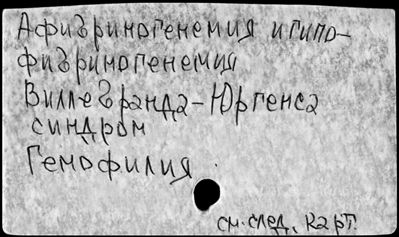 Афибриногенемия и гипо-
фибриногенемия
Виллебранда-Юргенса
синдром
Гемофилия
см. след. карт.